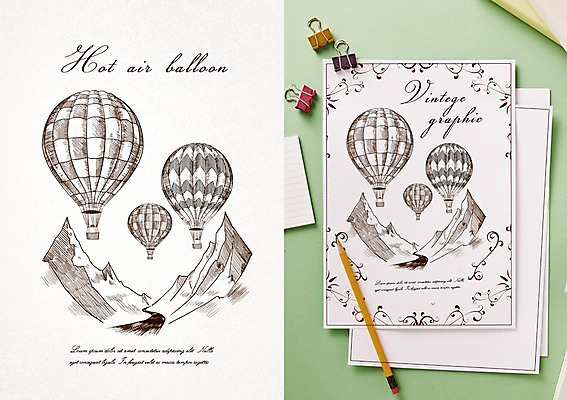 Hot air balloon
Lorem ipsum dolor sit amet consectetur adipiscing elit. Nulla
eget consequat ligula. In feugiat velit ac massa tempor sagittis.
Vintege
graphic
Lorem ipsum dolor sit amet consectetur adipiscing elit. Nulla
eget consequat ligula. In feugiat velit ac massa tempor sagittis.